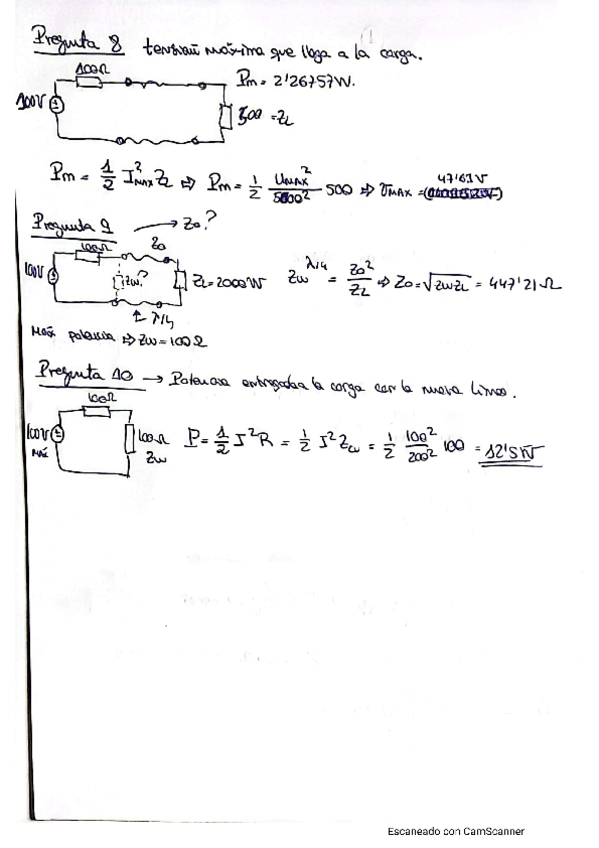 Pregunta 8 tensión máxima que llega a la carga.
100Ω
Pm = 2'26757W.
100V
500 = ZL
Pm = 1/2 I²MAX ZL ⇒ Pm = 1/2 UMAX²/500² 500 ⇒ UMAX = 47'61V
Pregunta 9 → Zo?
100Ω Zo
100V Zw? ZL = 2000W Zw^λ/4 = Zo²/ZL ⇒ Zo = √ZwZL = 447'21Ω
λ/4
Max potencia ⇒ Zw = 100Ω
Pregunta 10 → Potencia entregada la carga con la nueva línea.
100Ω
100V 100Ω P = 1/2 I²R = 1/2 I²Zw = 1/2 100²/200² 100 = 12'5W
Zw
Escaneado con CamScanner